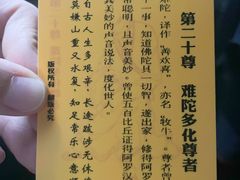 第二十尊　难陀多化尊者
难陀，译作“善欢喜”，亦名“牧牛”。尊者曾
十一事，知道佛陀具一切智，遂出家，修得阿罗
常聪明，且声音美妙。曾使五百比丘证得阿罗汉
美妙的声音说法，度化世人。
自古人生多艰辛，长途跋涉无休
莫嫌山重又水复，知足常乐心意
版权所有　翻版必究